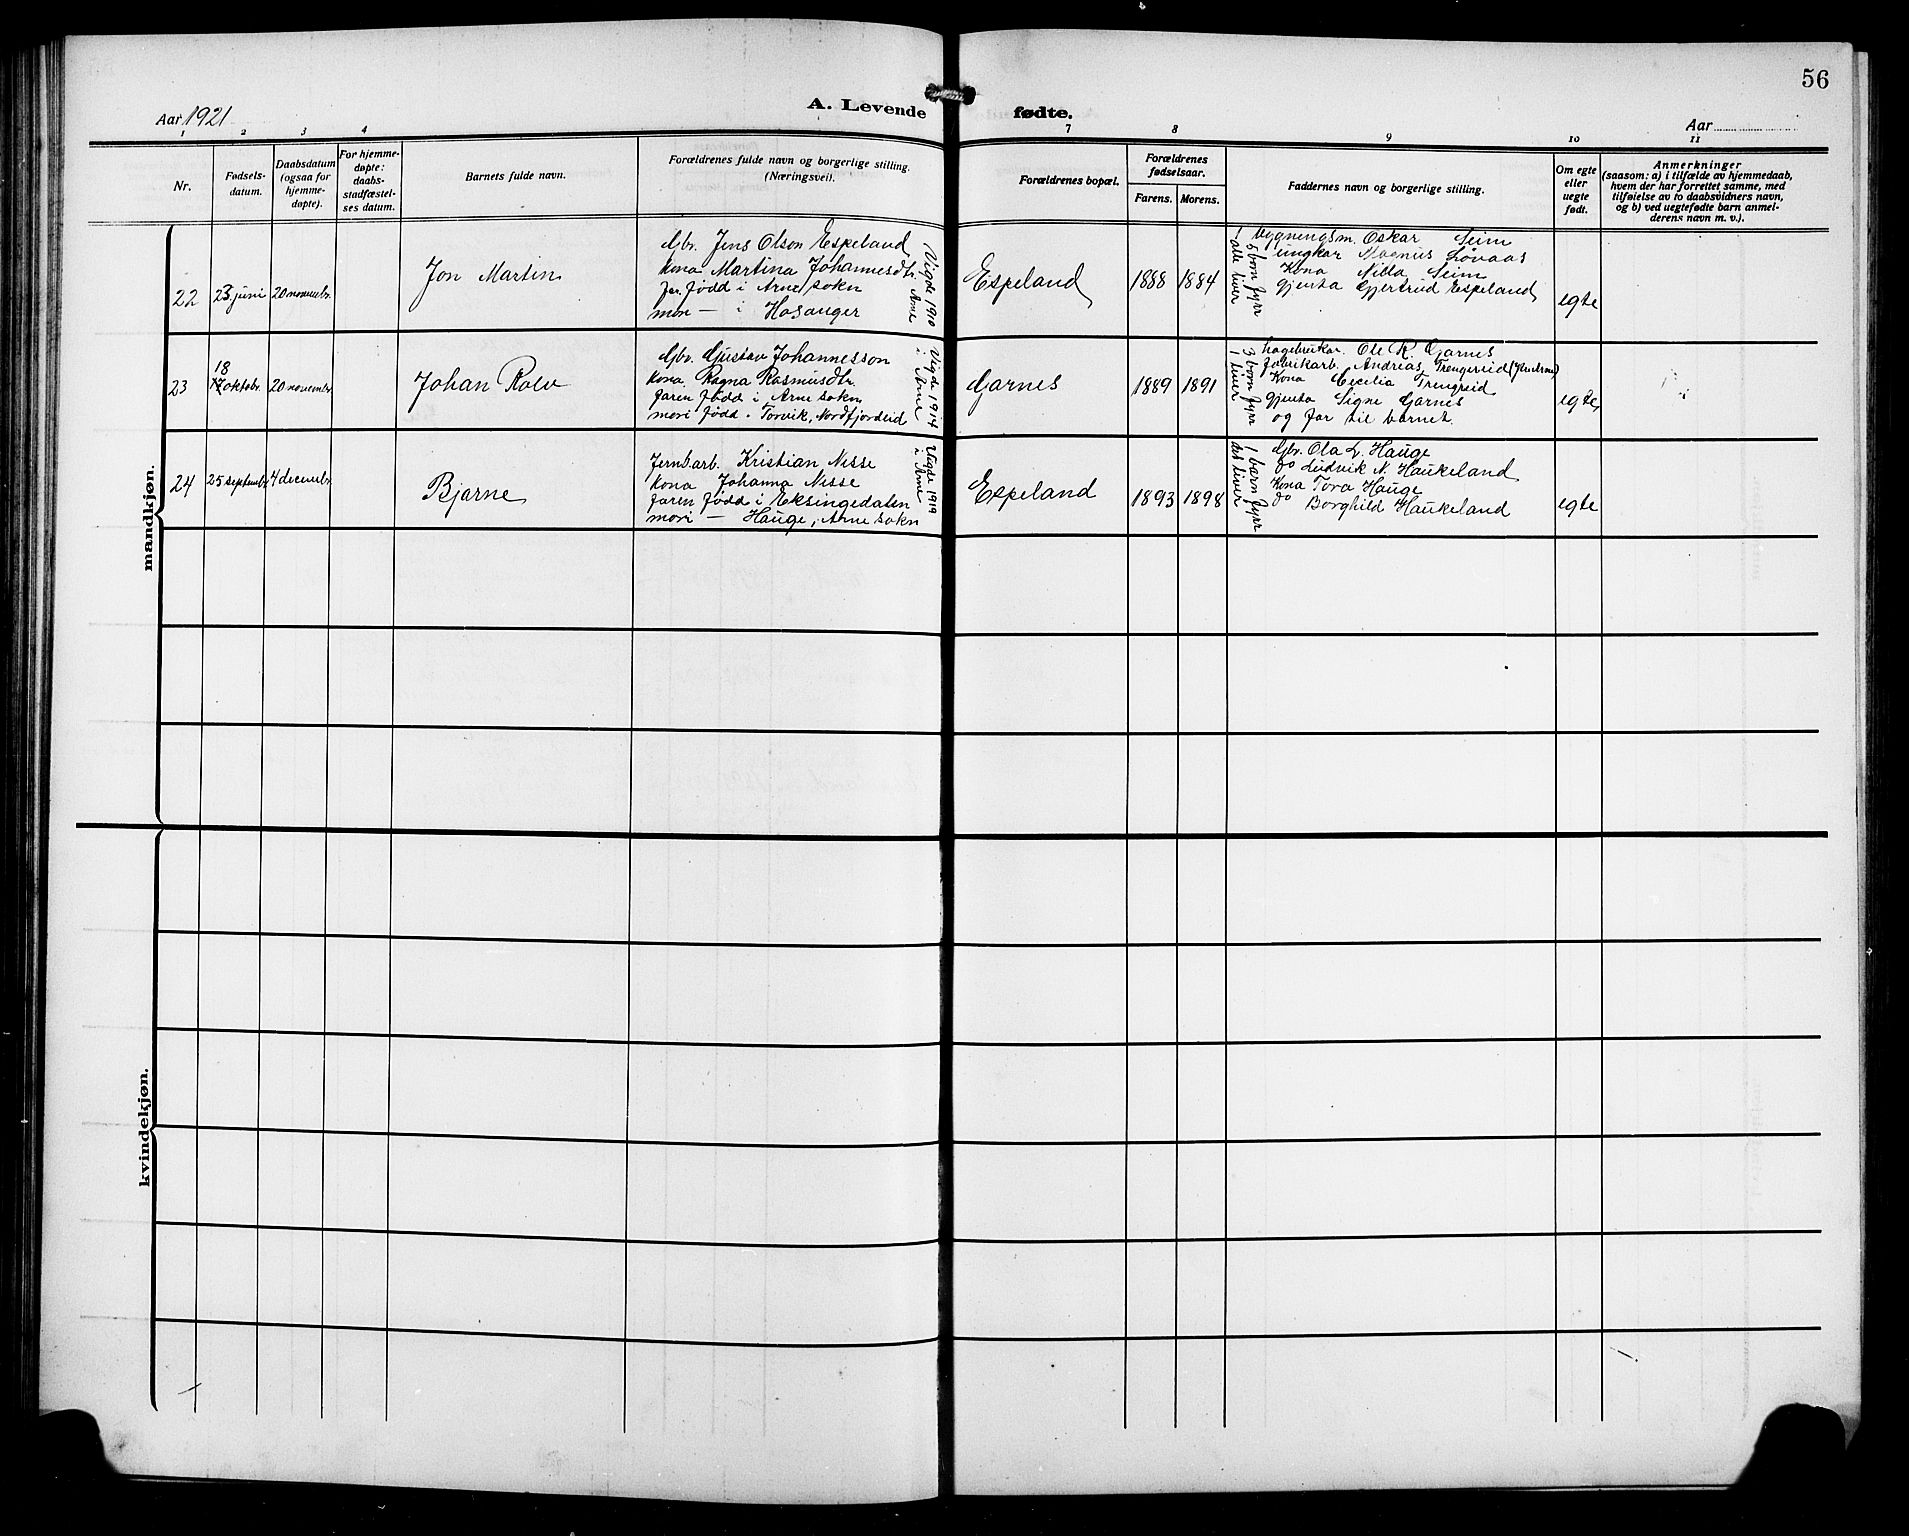 56
Aar 1921
A. Levende
fødte.
Aar
1 2 3 4
7 8 9 10 11
Nr.
Fødsels-
datum.
Daabsdatum
(ogsaa for
hjemme-
døpte).
For hjemme-
døpte:
daabs-
stadfæstel-
ses datum.
Barnets fulde navn.
Forældrenes fulde navn og borgerlige stilling.
(Næringsvei).
Forældrenes bopæl.
Forældrenes
fødselsaar.
Farens. Morens.
Faddernes navn og borgerlige stilling.
Om egte
eller
uegte
født.
Anmerkninger
(saasom: a) i tilfælde av hjemmedaab,
hvem der har forrettet samme, med
tilføielse av to daabsvidners navn,
og b) ved uegtefødte barn anmel-
derens navn m. v.).
mandkjøn.
22
23 juni
20 novembr.
Jon Martin
Gbr. Jens Olson Espeland
kona Martina Johannesdtr.
far fødd i Arne sokn
mor — i Hosanger
Vigde 1910
i Arne
Espeland
1888
1884
5 born fyrr
alle liver
bygningsm. Oskar Seim
ungkar Magnus Løvaas
Kona Nilla Seim
gjenta Gjertrud Espeland
egte
23
18
17 oktobr.
20 novembr.
Johan Rolv
Gbr. Gustav Johannesson
kona Ragna Rasmusdtr.
faren fødd i Arne sokn
mori fødd - Torvik, Nordfjordeid
Vigde 1914
i Arne
Garnes
1889
1891
3 born fyrr
1 liver
hagebrukar. Ole K. Garnes
fabrikarb. Andreas Trengereid
Kona Cecilia Trengreid
gjenta Signe Garnes
og far til barnet.
egte
24
25 septembr.
4 decembr.
Bjarne
Jernb.arb. Kristian Nesse
kona Johanna Nesse
faren fødd i Eksingedalen
mori — Hauge, Arne sokn
Vigde 1919
i Arne
Espeland
1893
1898
1 barn fyrr
det liver
Gbr. Ola L. Hauge
do Ludvik N. Haukeland
Kona Tora Hauge
do Borghild Haukeland
egte
kvindekjøn.